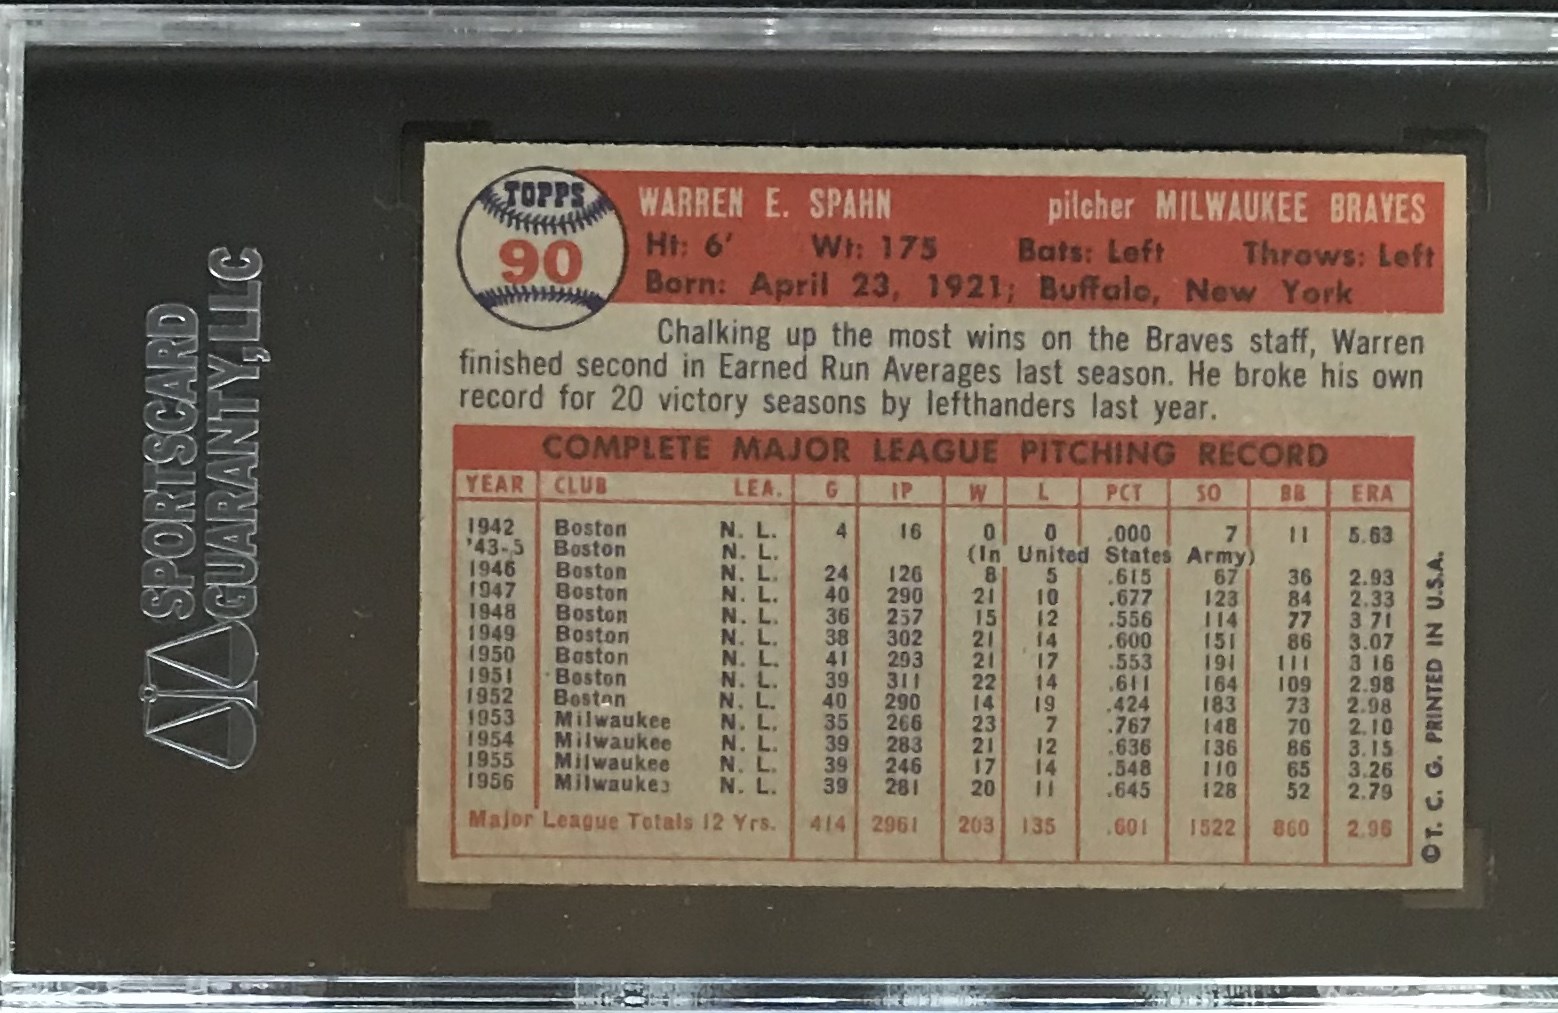 SPORTSCARD
GUARANTY, LLC
TOPPS
90
WARREN E. SPAHN pitcher MILWAUKEE BRAVES
Ht: 6' Wt: 175 Bats: Left Throws: Left
Born: April 23, 1921; Buffalo, New York
Chalking up the most wins on the Braves staff, Warren
finished second in Earned Run Averages last season. He broke his own
record for 20 victory seasons by lefthanders last year.
COMPLETE MAJOR LEAGUE PITCHING RECORD
YEAR CLUB LEA. G IP W L PCT SO BB ERA
1942 Boston N. L. 4 16 0 0 .000 7 11 5.63
'43-5 Boston N. L. (In United States Army)
1946 Boston N. L. 24 126 8 5 .615 67 36 2.93
1947 Boston N. L. 40 290 21 10 .677 123 84 2.33
1948 Boston N. L. 36 257 15 12 .556 114 77 3.71
1949 Boston N. L. 38 302 21 14 .600 151 86 3.07
1950 Boston N. L. 41 293 21 17 .553 191 111 3.16
1951 Boston N. L. 39 311 22 14 .611 164 109 2.98
1952 Boston N. L. 40 290 14 19 .424 183 73 2.98
1953 Milwaukee N. L. 35 266 23 7 .767 148 70 2.10
1954 Milwaukee N. L. 39 283 21 12 .636 136 86 3.15
1955 Milwaukee N. L. 39 246 17 14 .548 110 65 3.26
1956 Milwaukee N. L. 39 281 20 11 .645 128 52 2.79
Major League Totals 12 Yrs. 414 2961 203 135 .601 1522 860 2.96
©T. C. G. PRINTED IN U.S.A.